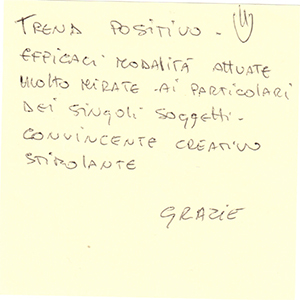 TREND POSITIVO -
EFFICACI MODALITÀ ATTUATE
MOLTO MIRATE - AI PARTICOLARI
DEI SINGOLI SOGGETTI -
CONVINCENTE CREATIVO
STIMOLANTE
GRAZIE